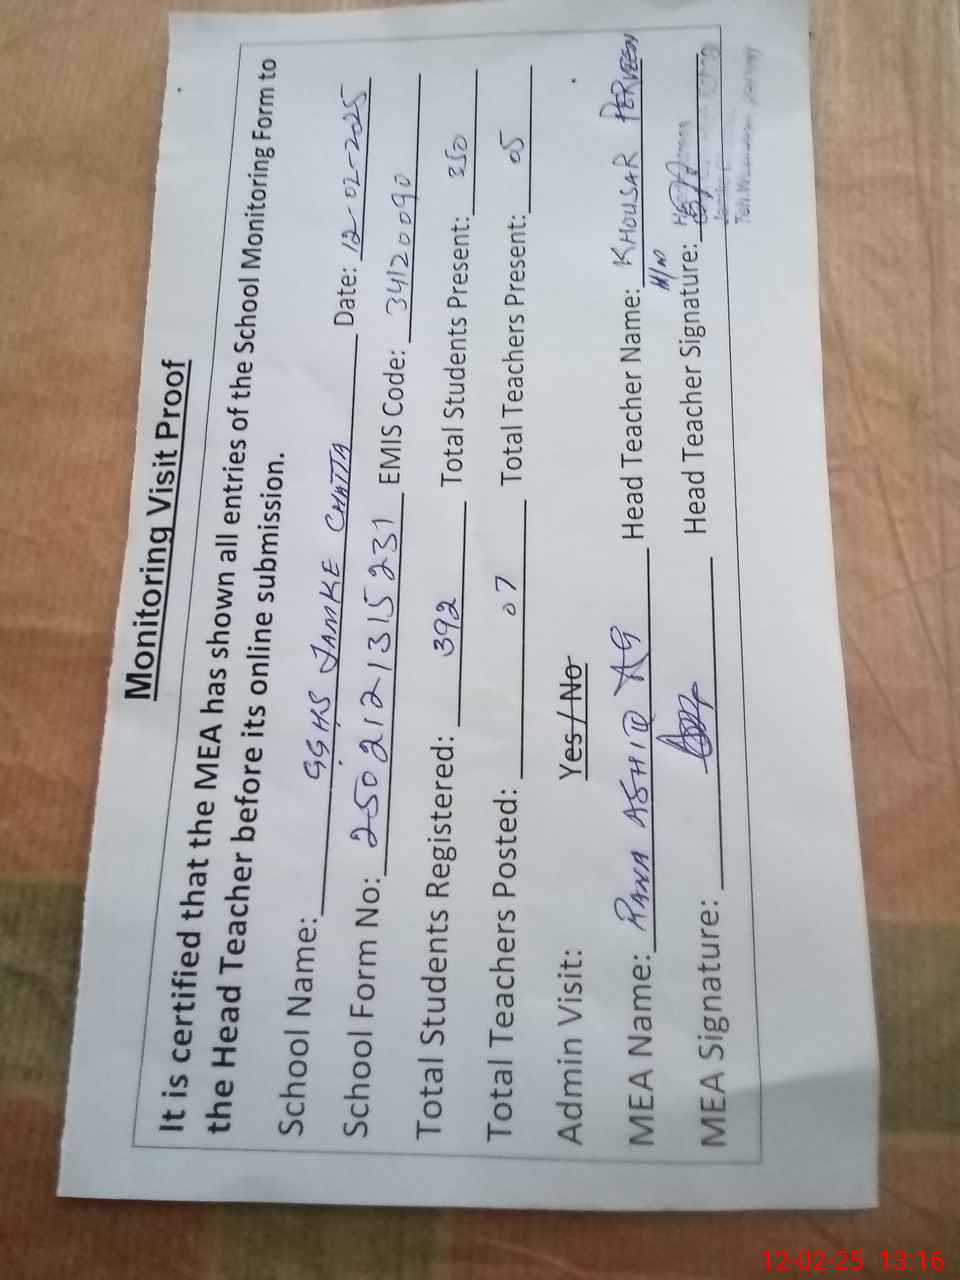 Monitoring Visit Proof
It is certified that the MEA has shown all entries of the School Monitoring Form to
the Head Teacher before its online submission.
School Name: GGHS JAMKE CHATTA Date: 12-02-2025
School Form No: 2502121315231 EMIS Code: 34120090
Total Students Registered: 392 Total Students Present: 350
Total Teachers Posted: 07 Total Teachers Present: 05
Admin Visit: Yes / No
MEA Name: RANA ASHIQ Head Teacher Name: KHOUSAR PERVEEN
MEA Signature: Head Teacher Signature:
12-02-25 13:16